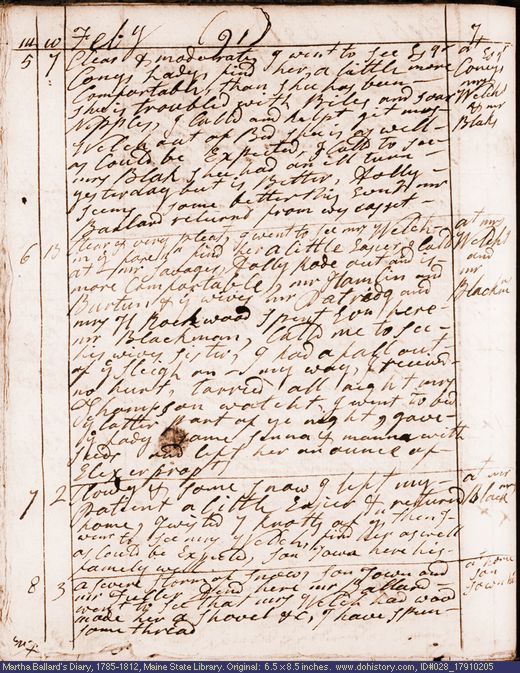 m w Feby (91)
5 7 Clear & moderate, I went to see Esqr at Esqr
Conys Lady, find her a little more Conys
Comfortable than shee has been. mrs
she is troubled with Biles and soar Welch
Nipples, I Calld and helpt get mrs & mr
Welch out of Bed she is as well Blaks
as Could be Expected, I calld to see
mrs Blak shee had an ill turn
yesterday but is Better, Dolly
seems some better this Evng mr
Ballard returnd from wicasset
6 13 Clear & very pleast, I went to see mrs Welch at mr
in ye ho find her a little Easier, I Calld Welchs
at mr Savages, Dolly rode out and is and
more Comfortable, mr Hamlin and mr
Burtun & ye wives mr Patridg and Blackmn
mrs Rockwood spent Evng here
mr Blackman, Calld me to see
his wives sister, I had a fall out
of ye sleigh on my way, I receivd
no hurt, tarred all night mrs
Thompson watcht, I went to bed
ye latter part of ye night, I gave
ye Lady some senna & manna with
seeds and left her an ounce of
Elixer propts
7 2 Clowdy & some snow I left my at mr
Patient a little Easier & returned Black
home, I twisted 7 knotts of then I
went to see mrs Welch, find her as well
as Could be Expected, son Town here his
family well
8 3 a severe storm of snow, son Town and at home
mr Fuller Dind here, mr Ballard son
went to see that mrs Welch had wood Town
made her a shovel &c, I have spun
some thread
Martha Ballard's Diary, 1785-1812, Maine State Library. Original: 6.5 x 8.5 inches. www.dohistory.com, ID#028_17910205